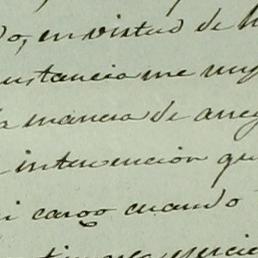 do, en virtud de h
unstancia me mu
la manera de arreg
intervención qu
i cargo cuando